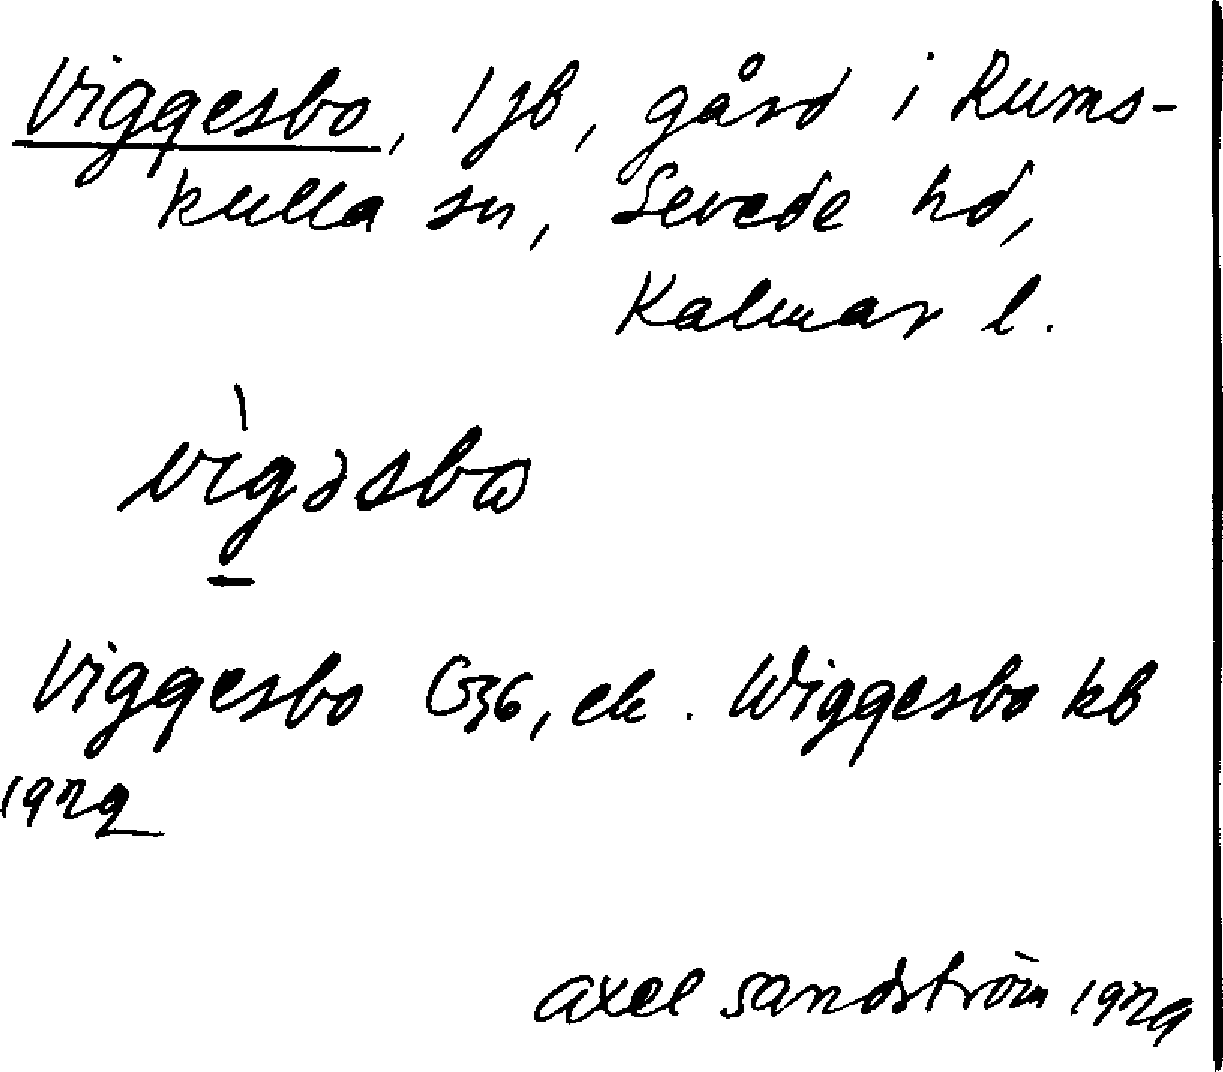 Viggesbo, 1 jb, gård i Rums-
kulla sn, Sevede hd,
Kalmar l.
vìgəsbo
Viggesbo G36, ek. Wiggesbo kb
1929
Axel Sandström 1929